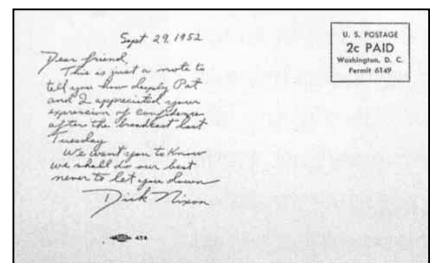 Sept 29, 1952
Dear friend,
This is just a note to
tell you how deeply Pat
and I appreciated your
expression of confidence
after the broadcast last
Tuesday
We want you to know
we shall do our best
never to let you down
Dick Nixon
U. S. POSTAGE
2c PAID
Washington, D. C.
Permit 6149